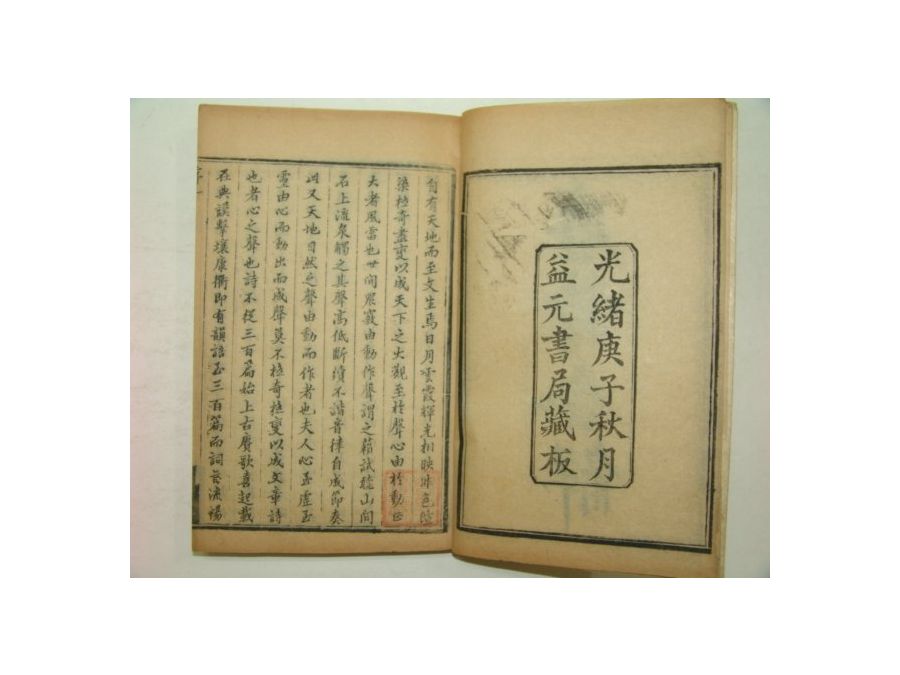 光緒庚子秋月
益元書局藏板
自有天地而至文生焉日月雲霞輝光相映殊色
染極奇盡變以成天下之大觀至於聲心由於動
大者風雷也世間眾竅由動作聲謂之籟試聽山間
石上流泉觸之其聲高低斷續不諧音律自成節奏
此又天地自然之聲由動而作者也夫人心至虛至
靈由心而動出而成聲莫不極奇極變以成文章詩
也者心之聲也詩不從三百篇始上古賡歌喜起載
在典謨擊壤康衢即有韻語至三百篇而詞
序一